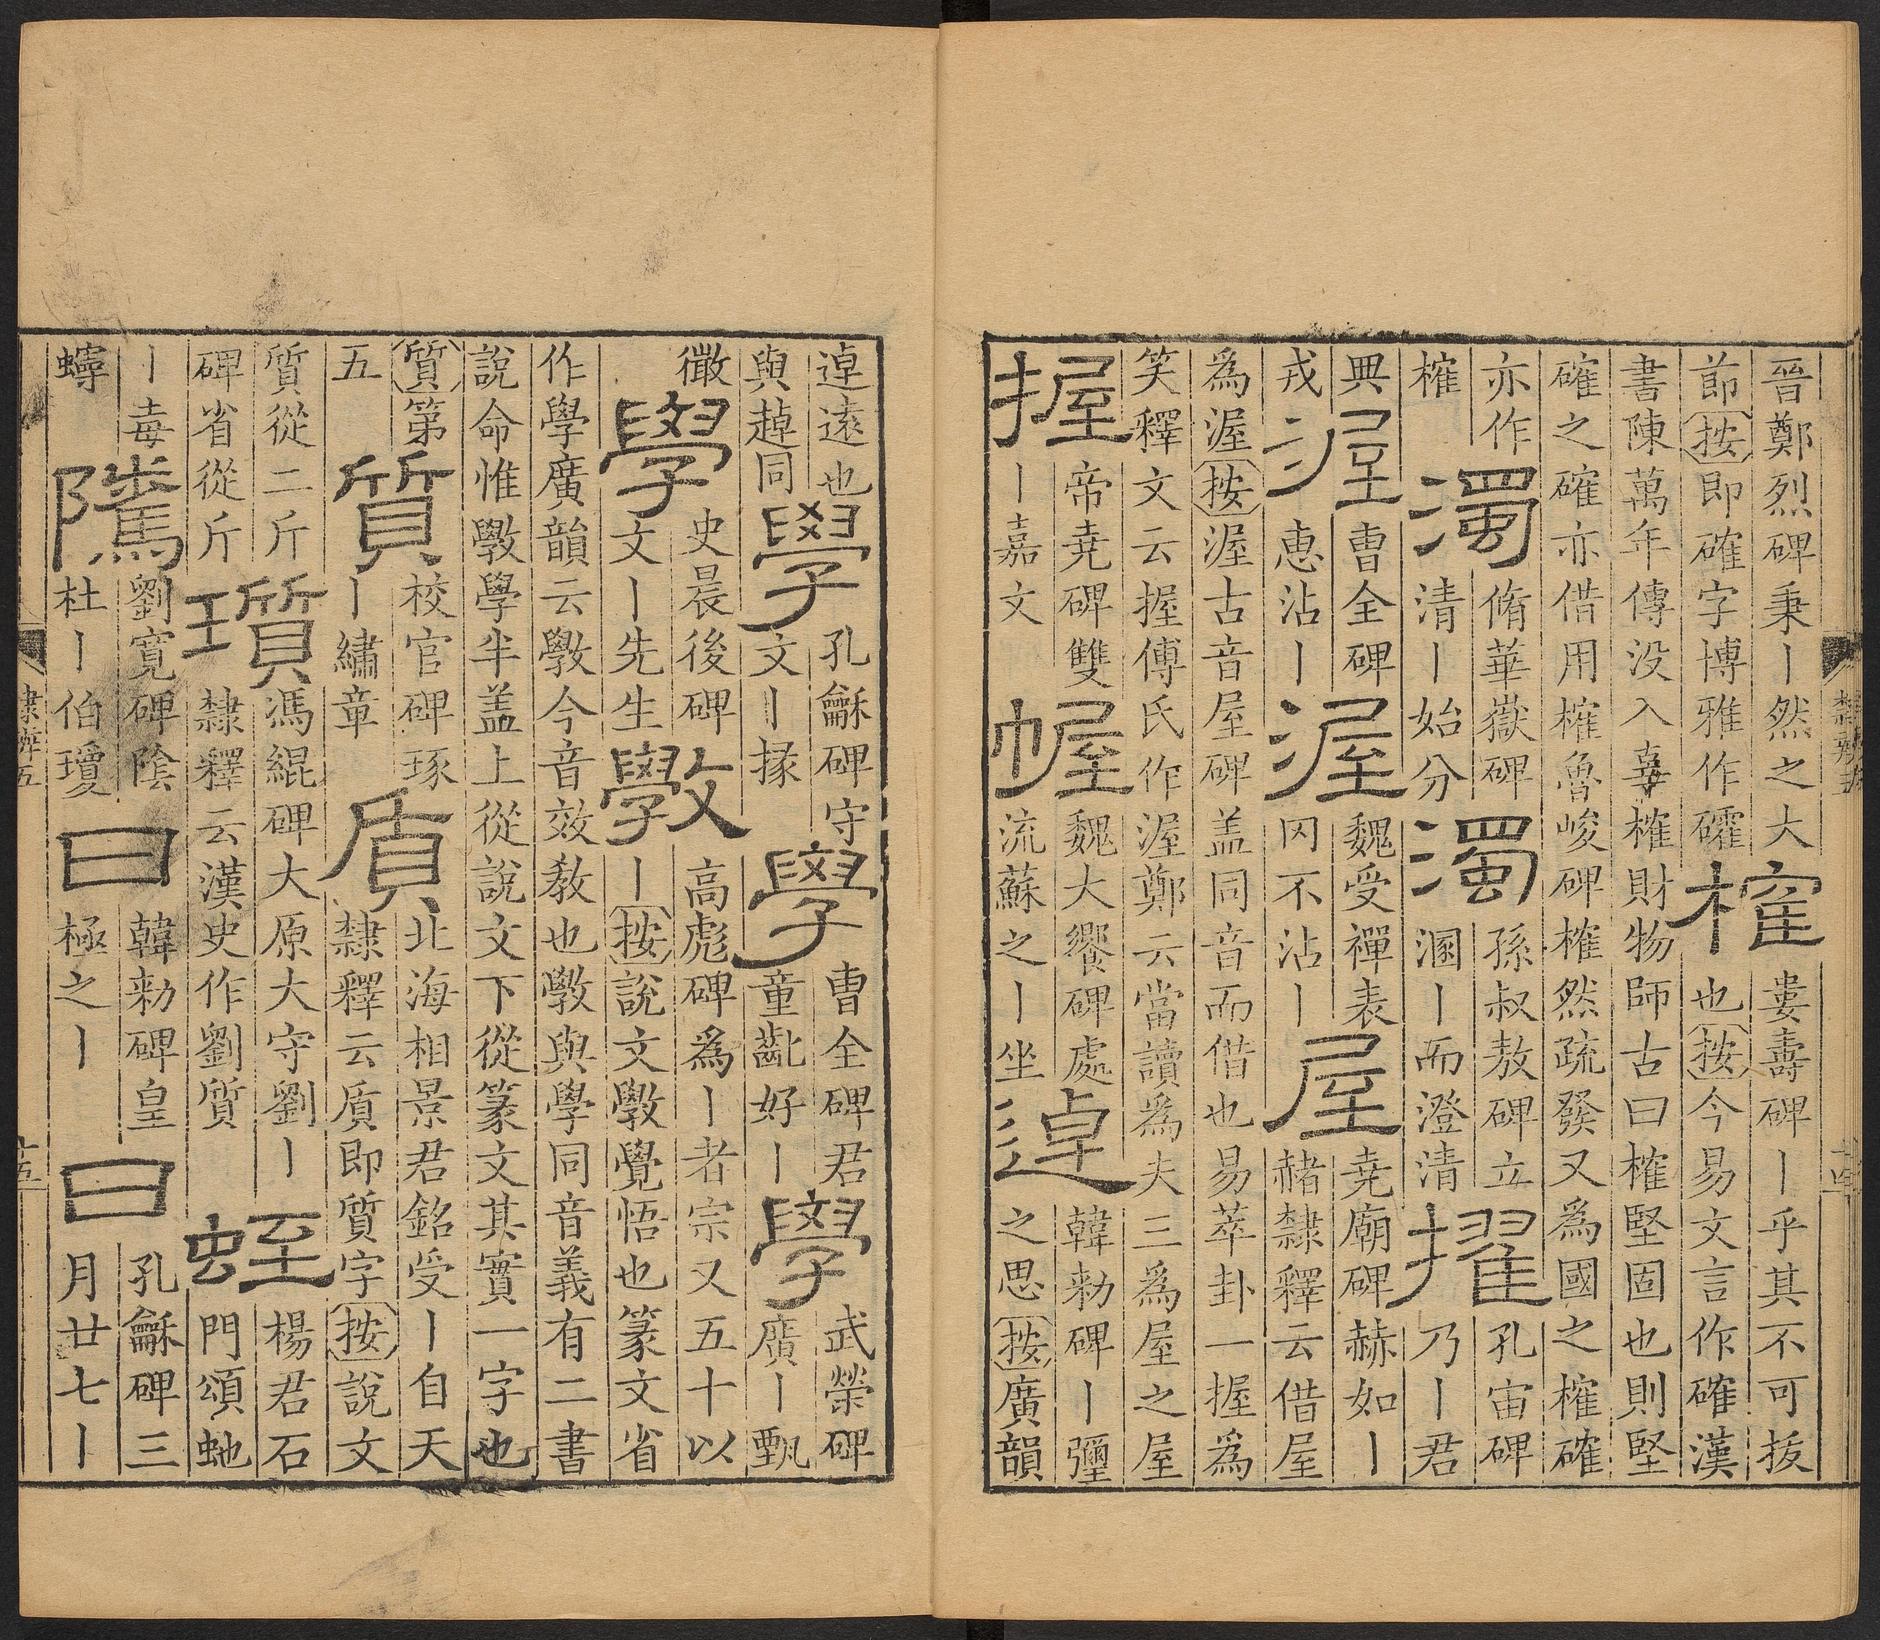 晉鄭烈碑秉丨然之大
節按即確字博雅作礭
榷
婁壽碑丨乎其不可拔
也按今易文言作確漢
書陳萬年傳没入辜榷財物師古曰榷堅固也則堅
確之確亦借用榷魯峻碑榷然疏發又為國之榷確
亦作
榷
濁
脩華嶽碑
清丨始分
濁
孫叔敖碑立
溷丨而澄清
擢
孔宙碑
乃丨君
典
戎
渥
曹全碑
惠沾丨
渥
魏受禪表
罔不沾丨
屋
堯廟碑赫如丨
赭隸釋云借屋
為渥按渥古音屋碑盖同音而借也易萃卦一握為
笑釋文云握傅氏作渥鄭云當讀為夫三為屋之屋
握
帝堯碑雙
丨嘉文
幄
魏大饗碑處
流蘇之丨坐
逴
韓勑碑丨彌
之思按廣韻
逴遠也
與趠同
學
孔龢碑守
文丨掾
學
曹全碑君
童齔好丨
學
武榮碑
廣丨甄
徵
學
史晨後碑
文丨先生
斆
高彪碑為丨者宗又五十以
丨按說文斆覺悟也篆文省
作學廣韻云斆今音效教也斆與學同音義有二書
說命惟斆學半盖上從說文下從篆文其實一字也
質第
五
質
校官碑琢
丨繡章
貭
北海相景君銘受丨自天
隸釋云貭即質字按說文
質從二斤
碑省從斤
瓆
馮緄碑大原大守劉丨
隸釋云漢史作劉質
蛭
楊君石
門頌虵
丨毒
隲
劉寬碑陰
杜丨伯瓊
日
韓勑碑皇
極之丨
日
孔龢碑三
月廿七丨